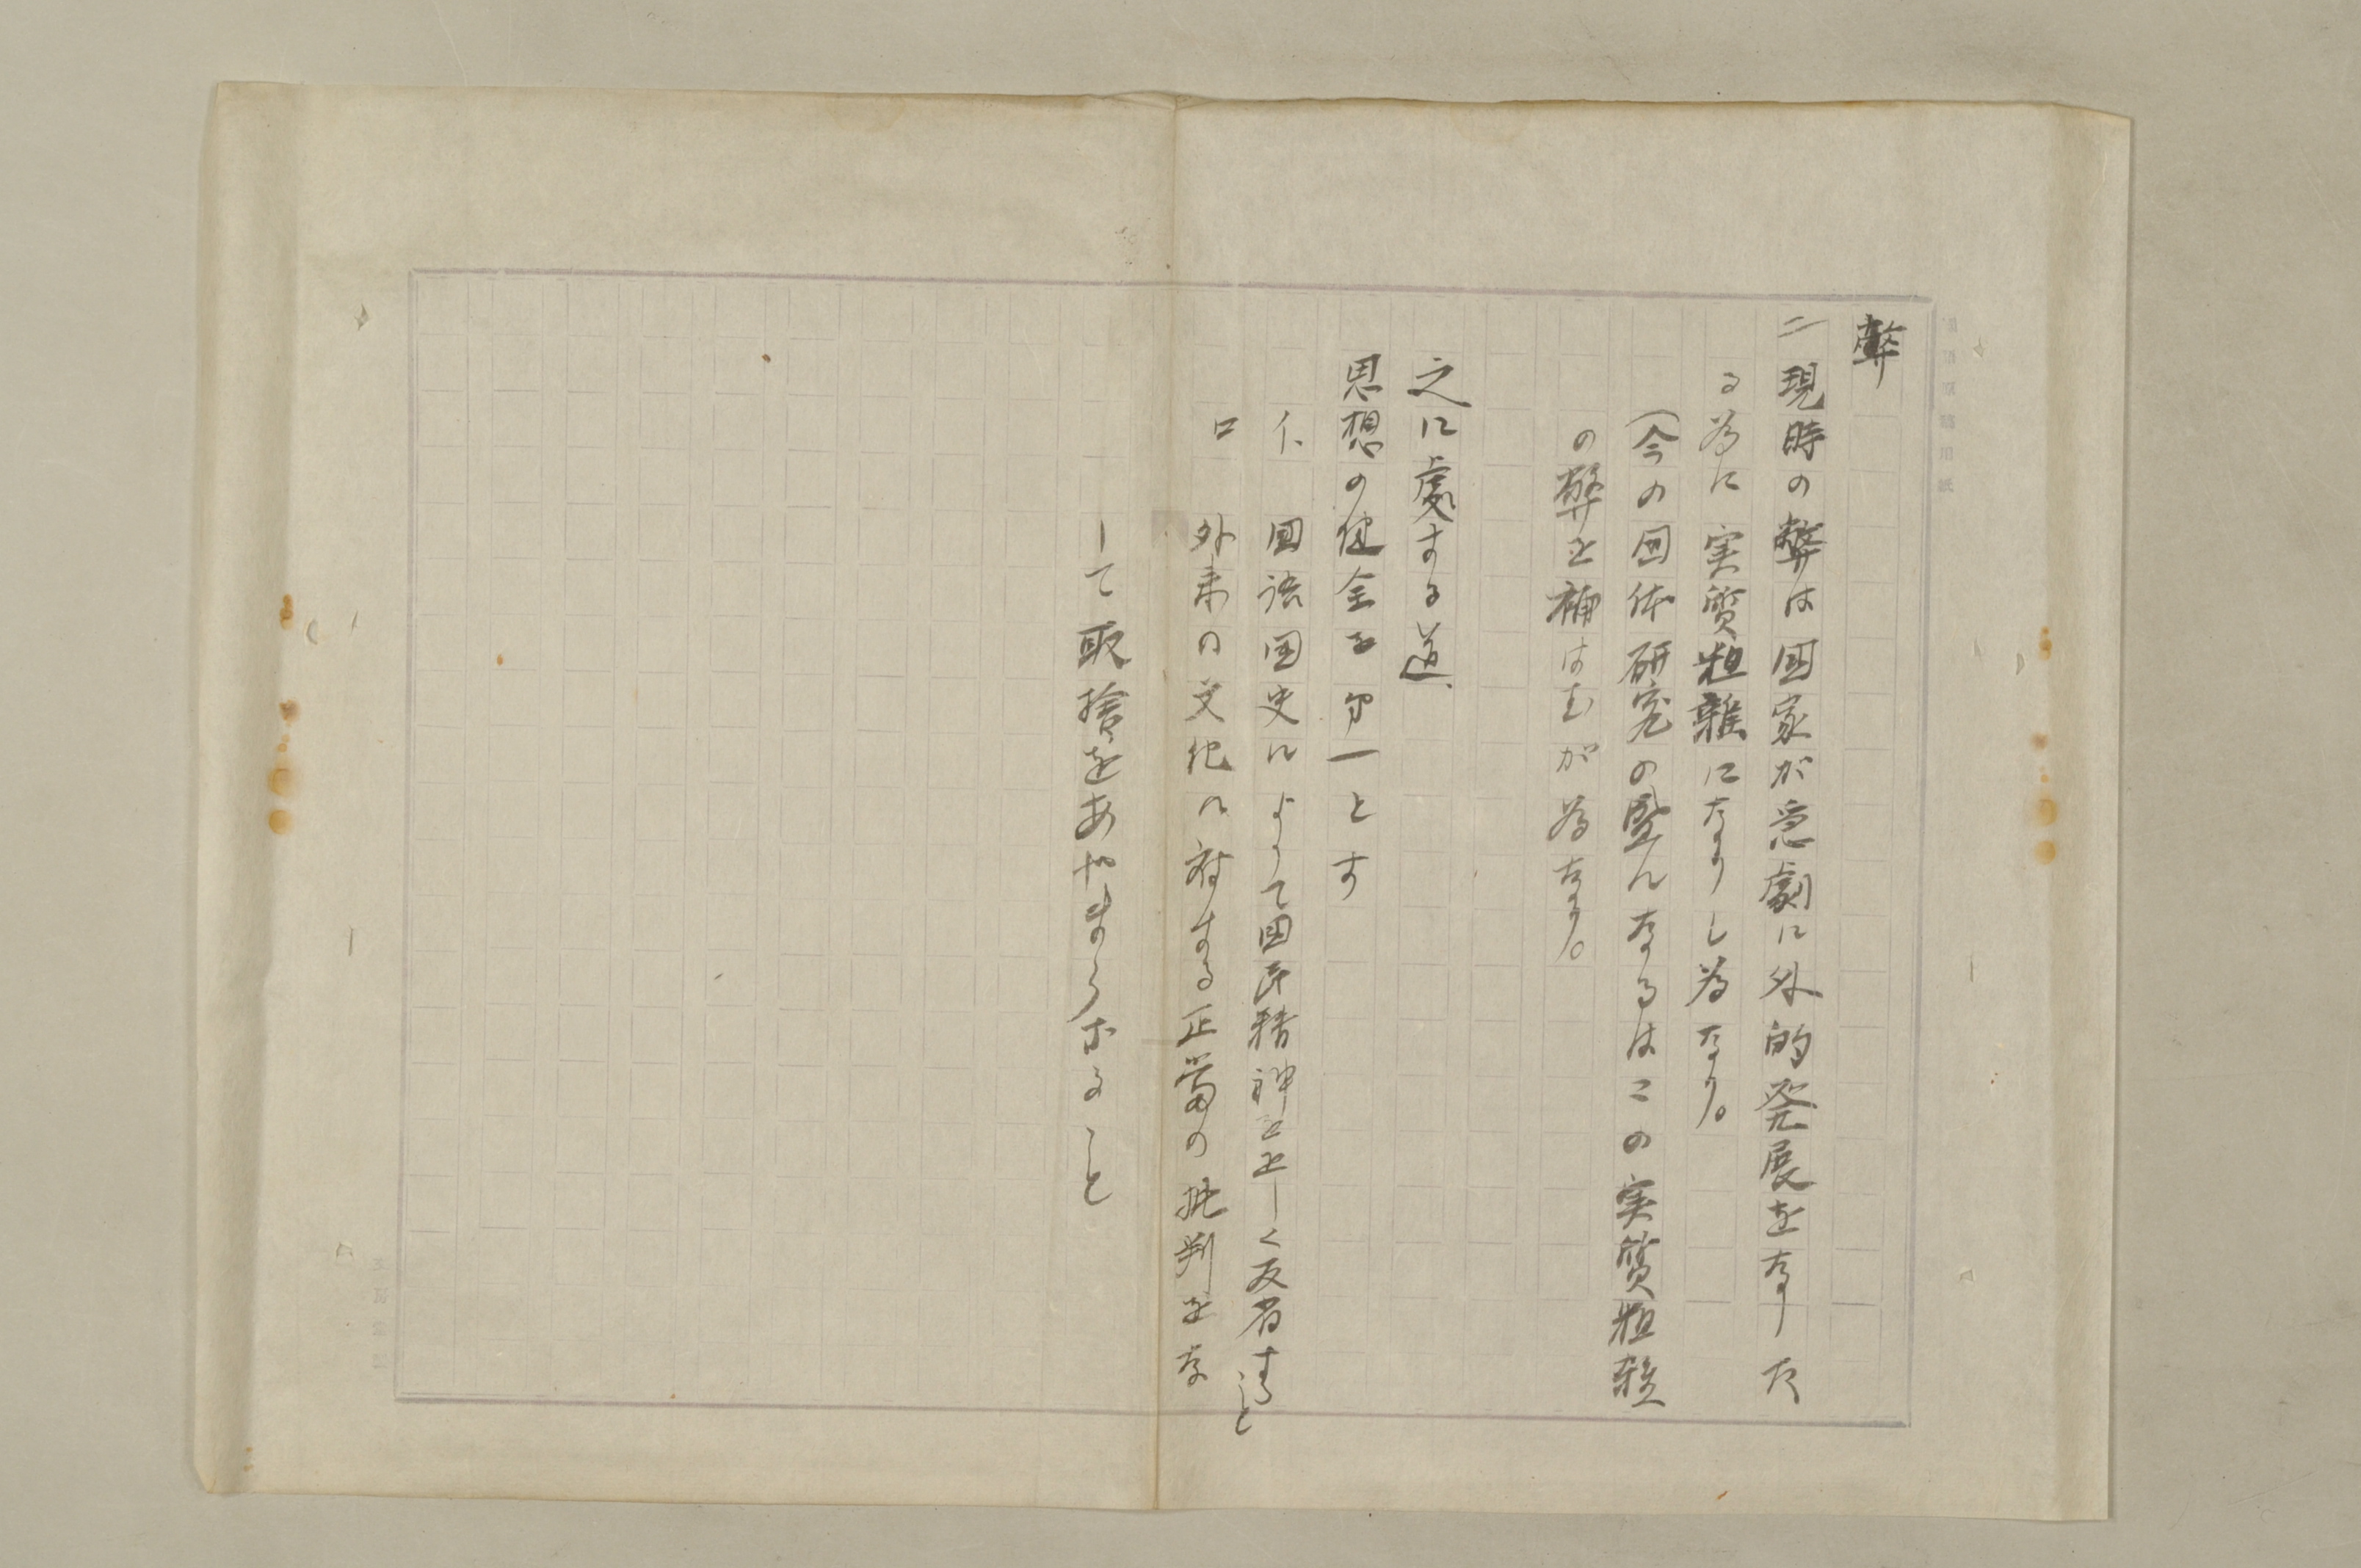 弊
二 現時の弊は国家が急劇に外的発展をなした
る為に実質粗雑になりし為なり。
(今の国体研究の盛んなるはこの実質粗雑
の弊を補はむが為なり。
之に處する道、
思想の健全を第一とす
イ、国語国史によりて国民精神を正しく反省すること
ロ 外来の文化に対する正当の批判をな
して取捨をあやまらざること